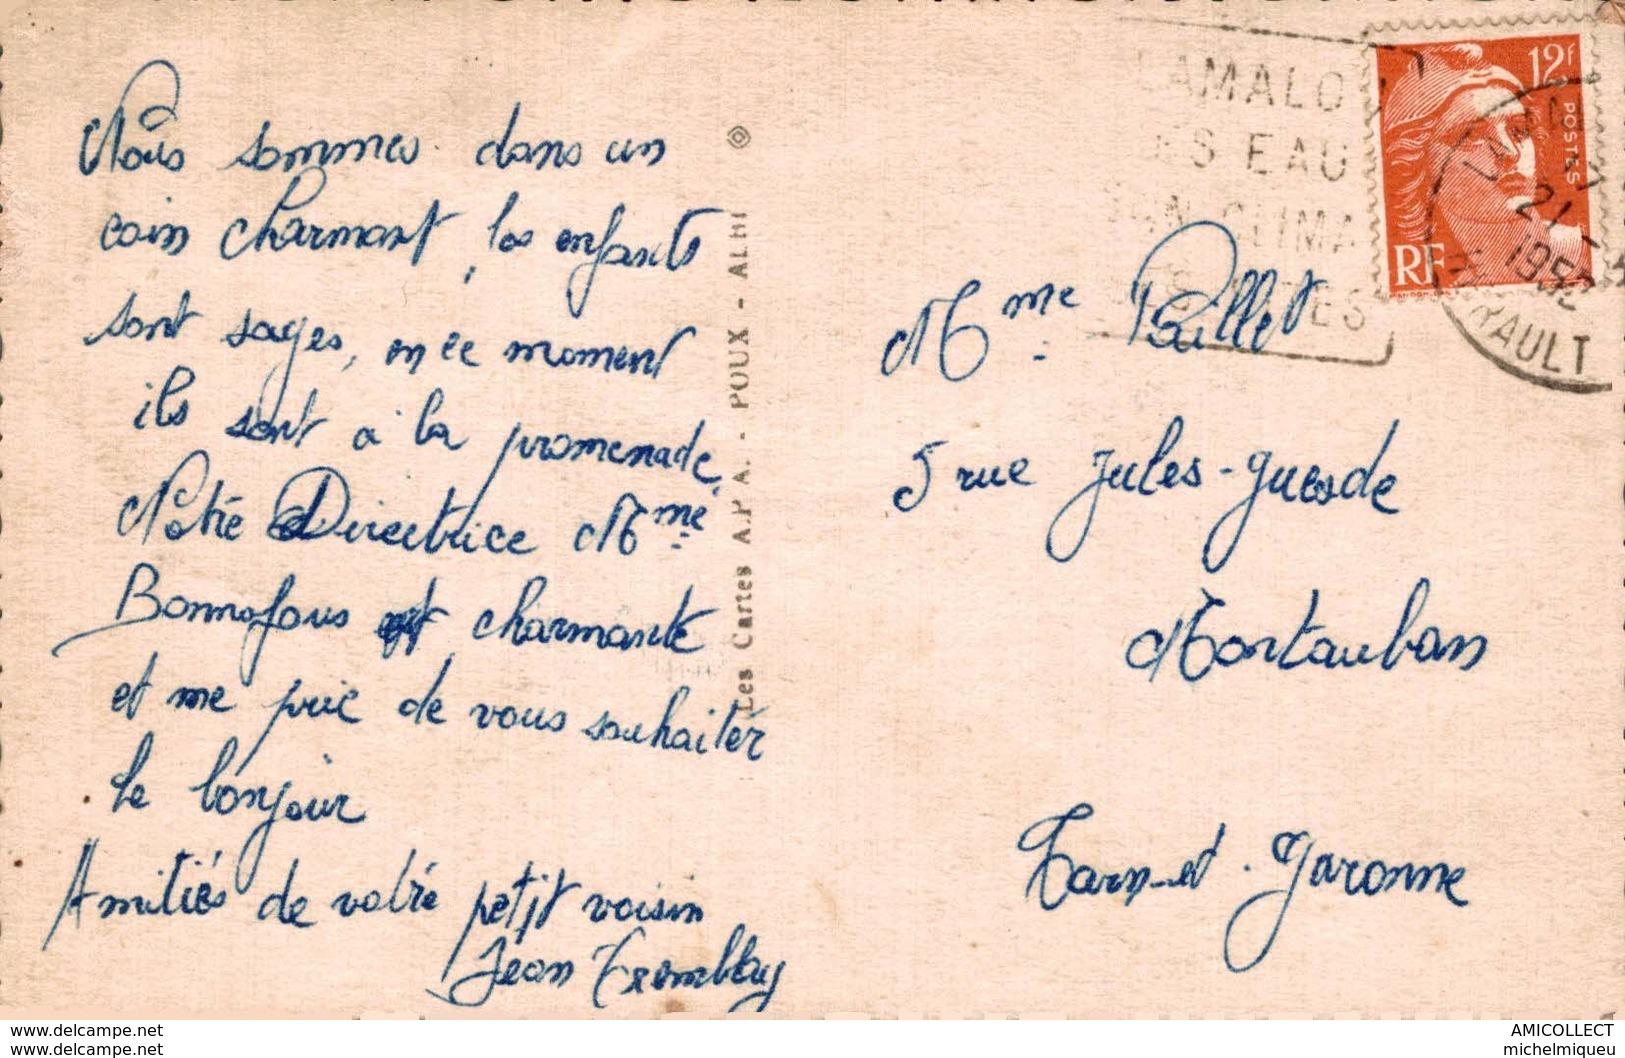 Nous sommes dans un
coin charmant, les enfants
sont sages, en ce moment
ils sont à la promenade.
Notre Directrice Mme
Bonnofous est charmante
et me prie de vous souhaiter
le bonjour
Amitiés de votre petit voisin
Jean Tremblay
Les Cartes A.P A. - POUX - ALBI
LAMALO
ES EAU
CLIMA
TES
12F
POSTES
RF
21
1952
HERAULT
Mme Paillet
5 rue Jules-Guesde
Montauban
Tarn-et-Garonne
www.delcampe.net
www.delcampe.net
AMICOLLECT
michelmiqueu